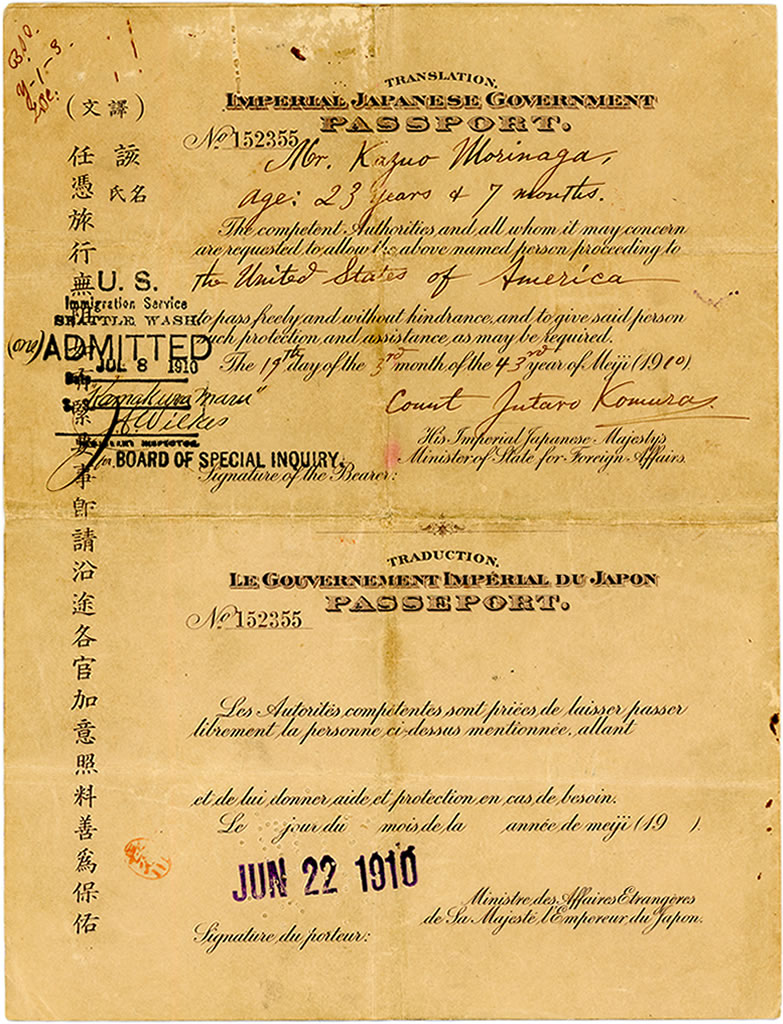 B.S.I.
7-1-3.
TRANSLATION.
IMPERIAL JAPANESE GOVERNMENT
PASSPORT.
No 152355
Mr. Kazuo Morinaga,
age: 23 years & 7 months.
The competent Authorities and all whom it may concern
are requested to allow the above named person proceeding to
the United States of America
to pass freely and without hindrance, and to give said person
such protection and assistance, as may be required.
The 19th day of the 3rd month of the 43rd year of Meiji (1910).
Count Jutaro Komura
His Imperial Japanese Majestys
Minister of State for Foreign Affairs.
Signature of the Bearer:
U. S.
Immigration Service
SEATTLE, WASH.
(one) ADMITTED
JUL 8 1910
S.S. "Kamakura Maru"
Wilkis
IMMIGRANT INSPECTOR
for BOARD OF SPECIAL INQUIRY.
(譯文)
該氏名
任憑旅行無阻如有緊要事卽請沿途各官加意照料善爲保佑
TRADUCTION.
LE GOUVERNEMENT IMPÉRIAL DU JAPON
PASSEPORT.
No 152355
Les Autorités compétentes sont priées de laisser passer
librement la personne ci-dessus mentionnée, allant
et de lui donner aide et protection en cas de besoin.
Le jour du mois de la année de meiji (19 ).
JUN 22 1910
Ministre des Affaires Etrangères
de Sa Majesté l'Empereur du Japon.
Signature du porteur: